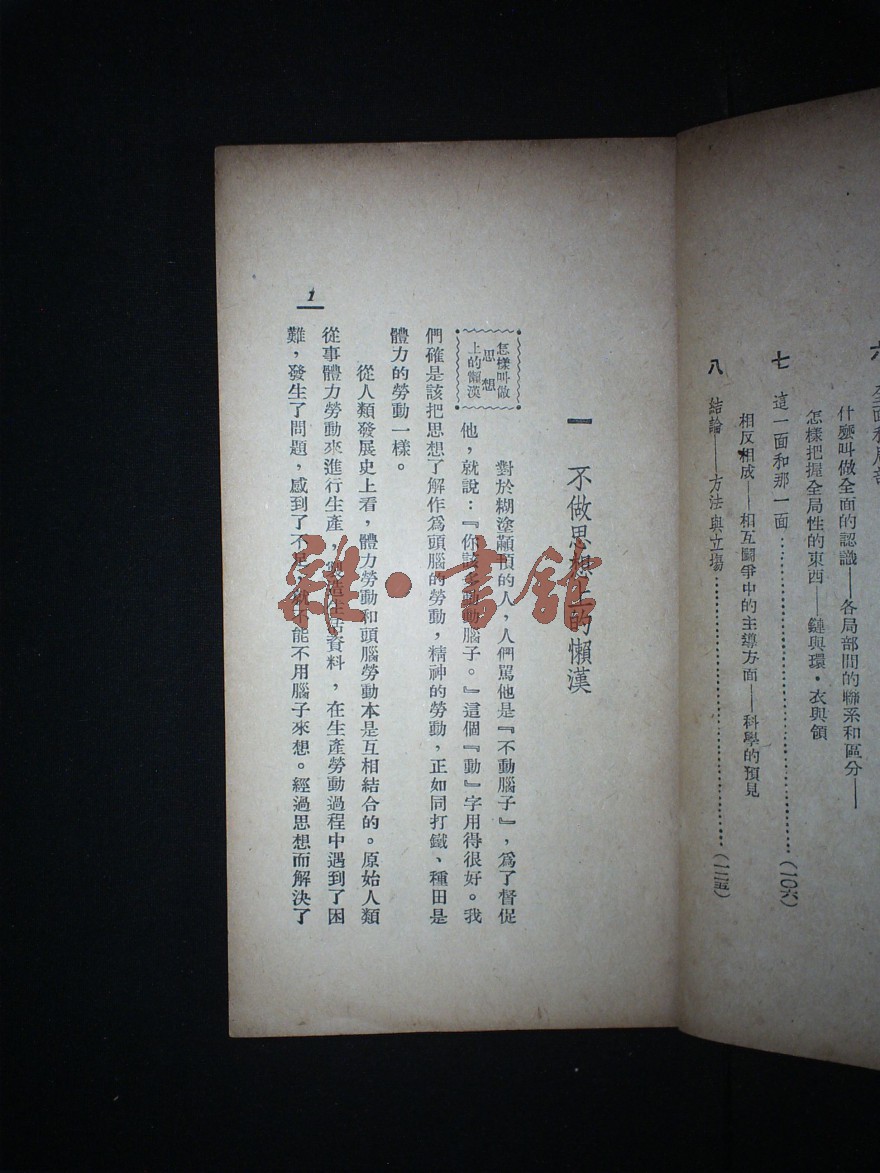 什麼叫做全面的認識——各局部間的聯系和區分——
怎樣把握全局性的東西——鏈與環·衣與領
七 這一面和那一面……………………………(一〇六)
相反相成——相互鬭爭中的主導方面——科學的預見
八 結論——方法與立場……………………………(一二五)
一 不做思想上的懶漢
怎樣叫做
思想
上的懶漢
對於糊塗顢頇的人,人們罵他是『不動腦子』,爲了督促
他,就說:『你該多動動腦子。』這個『動』字用得很好。我
們確是該把思想了解作爲頭腦的勞動,精神的勞動,正如同打鐵、種田是
體力的勞動一樣。
從人類發展史上看,體力勞動和頭腦勞動本是互相結合的。原始人類
從事體力勞動來進行生產,製造生活資料,在生產勞動過程中遇到了困
難,發生了問題,感到了不足,就不能不用腦子來想。經過思想而解決了
1
雜·書館